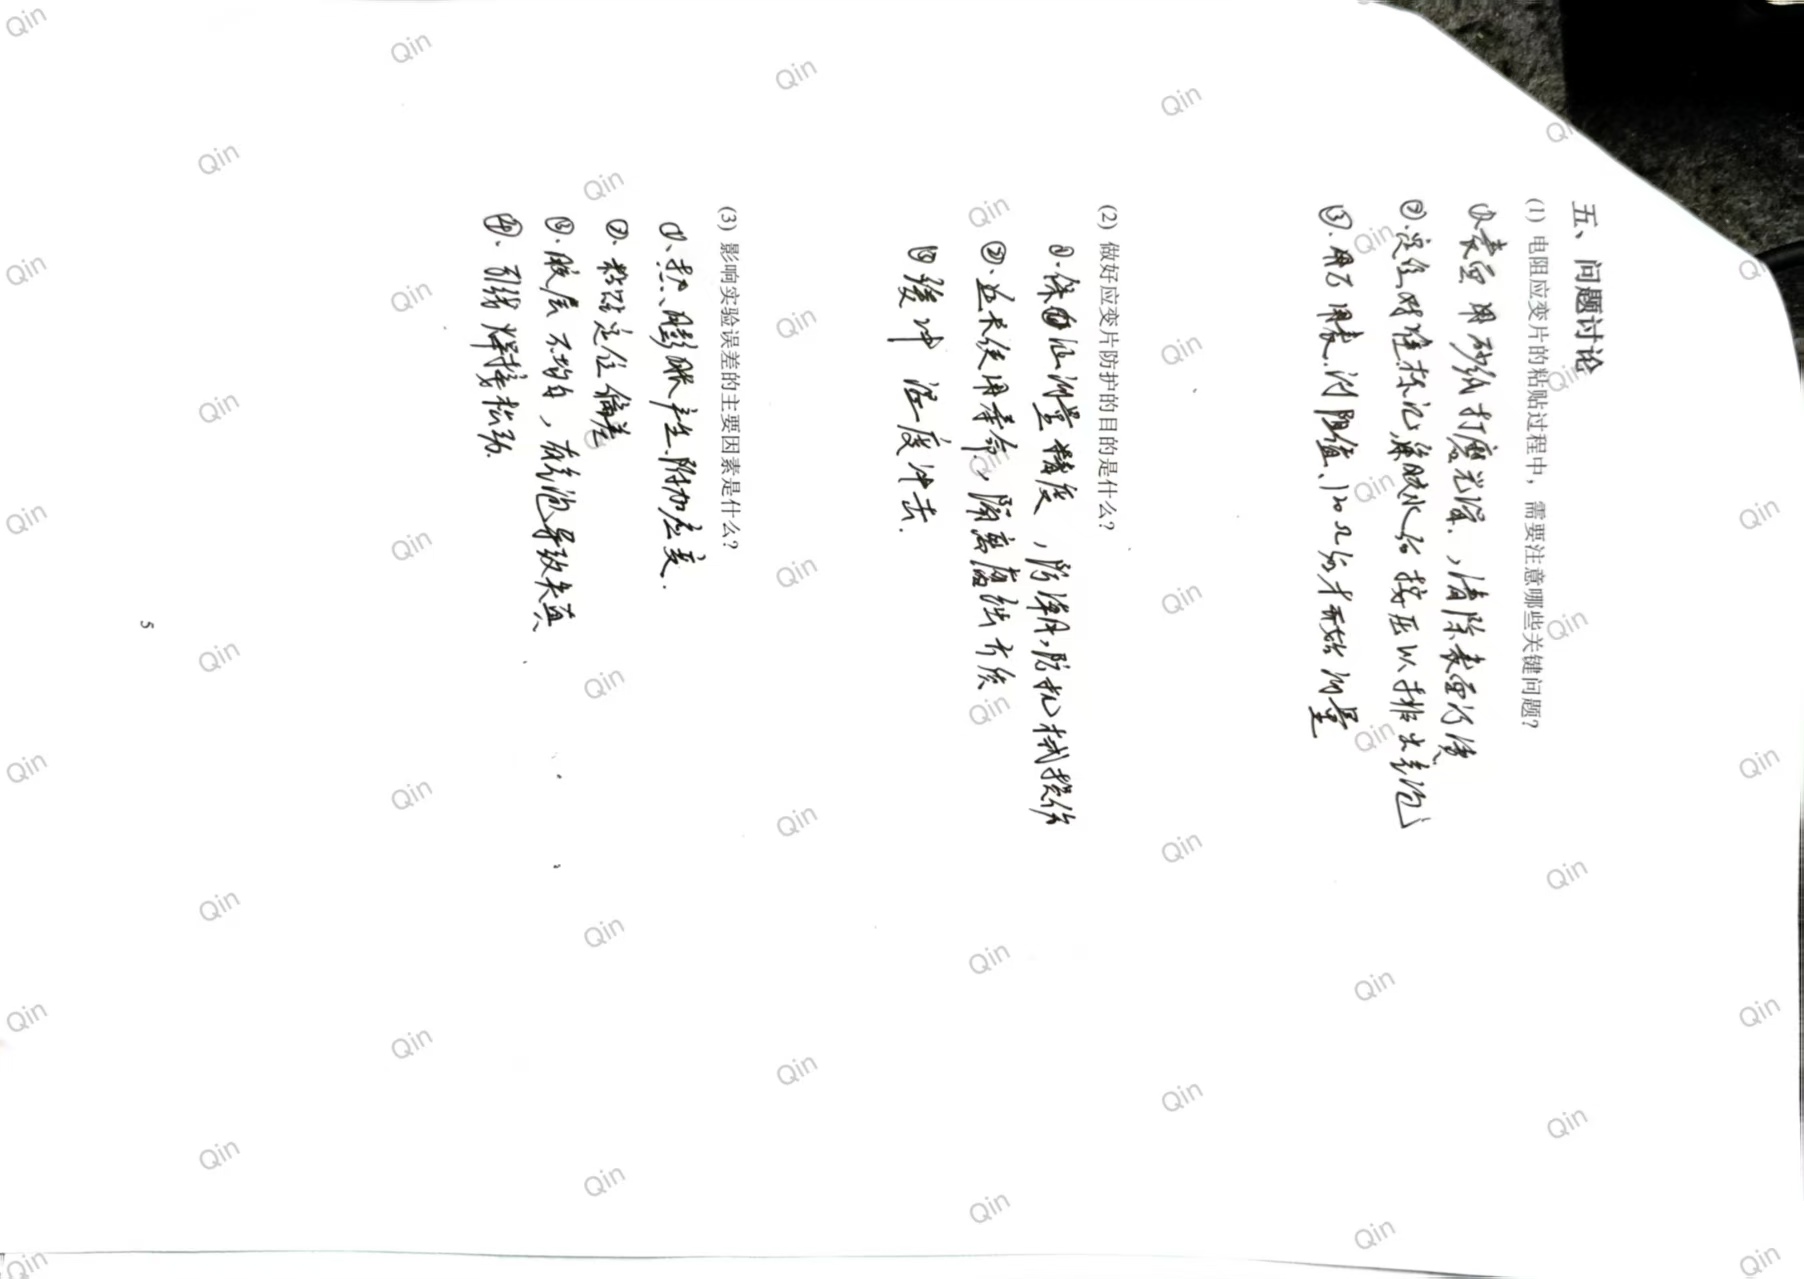 五、问题讨论
(1) 电阻应变片的粘贴过程中，需要注意哪些关键问题?
①表面用砂纸打磨光滑，清除表面污渍
②.定位对准标记，滴胶水后按压以排出气泡
③.用万用表测阻值、120Ω后才开始测量
(2) 做好应变片防护的目的是什么?
①.保证测量精度，防潮,防机械损伤
②.延长使用寿命，隔离腐蚀介质
③缓冲温度冲击.
(3) 影响实验误差的主要因素是什么?
①、热膨胀产生附加应变.
②.粘贴定位偏差
③.胶层不均匀，有气泡导致失真
④、引线焊接松动.
5
Qin